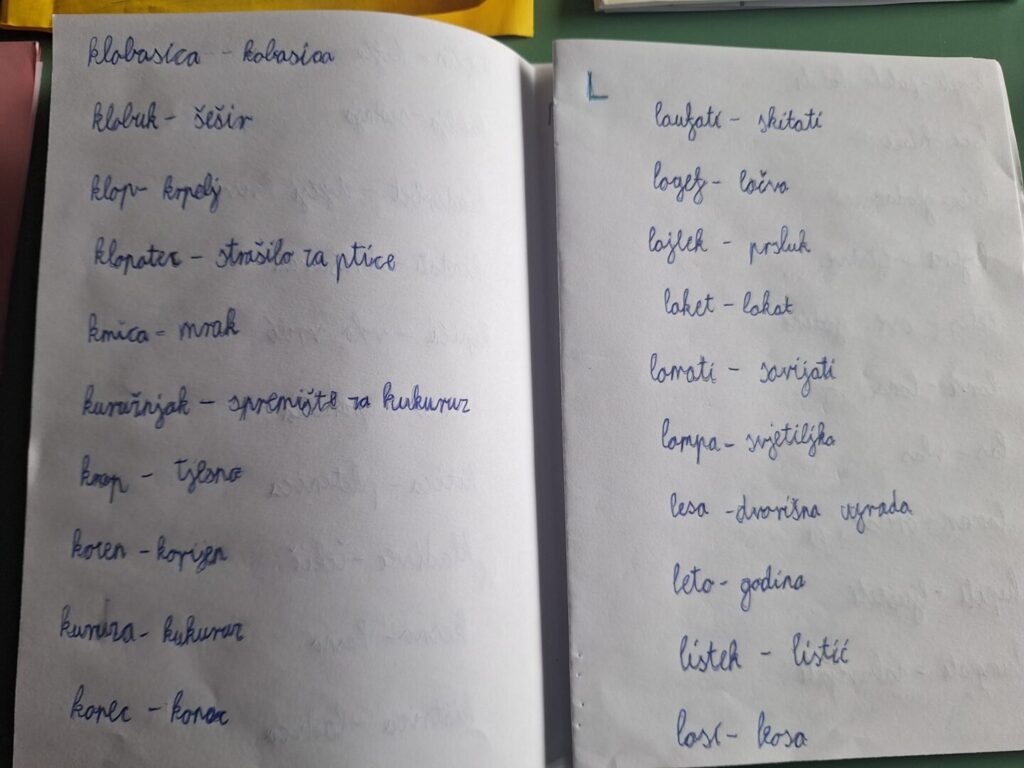 klobasica - kobasica
klobuk - šešir
klop - krpelj
klopotec - strašilo za ptice
kmica = mrak
kuružnjak - spremište za kukuruz
knap - tjesno
koren - korijen
kuruza - kukuruz
konec - konac
L
laufati - skitati
logez - bačva
lajlek - prsluk
laket - lakat
lamati - savijati
lampa - svjetiljka
lesa - dvorišna ograda
leto - godina
listek - listić
lasi - kosa